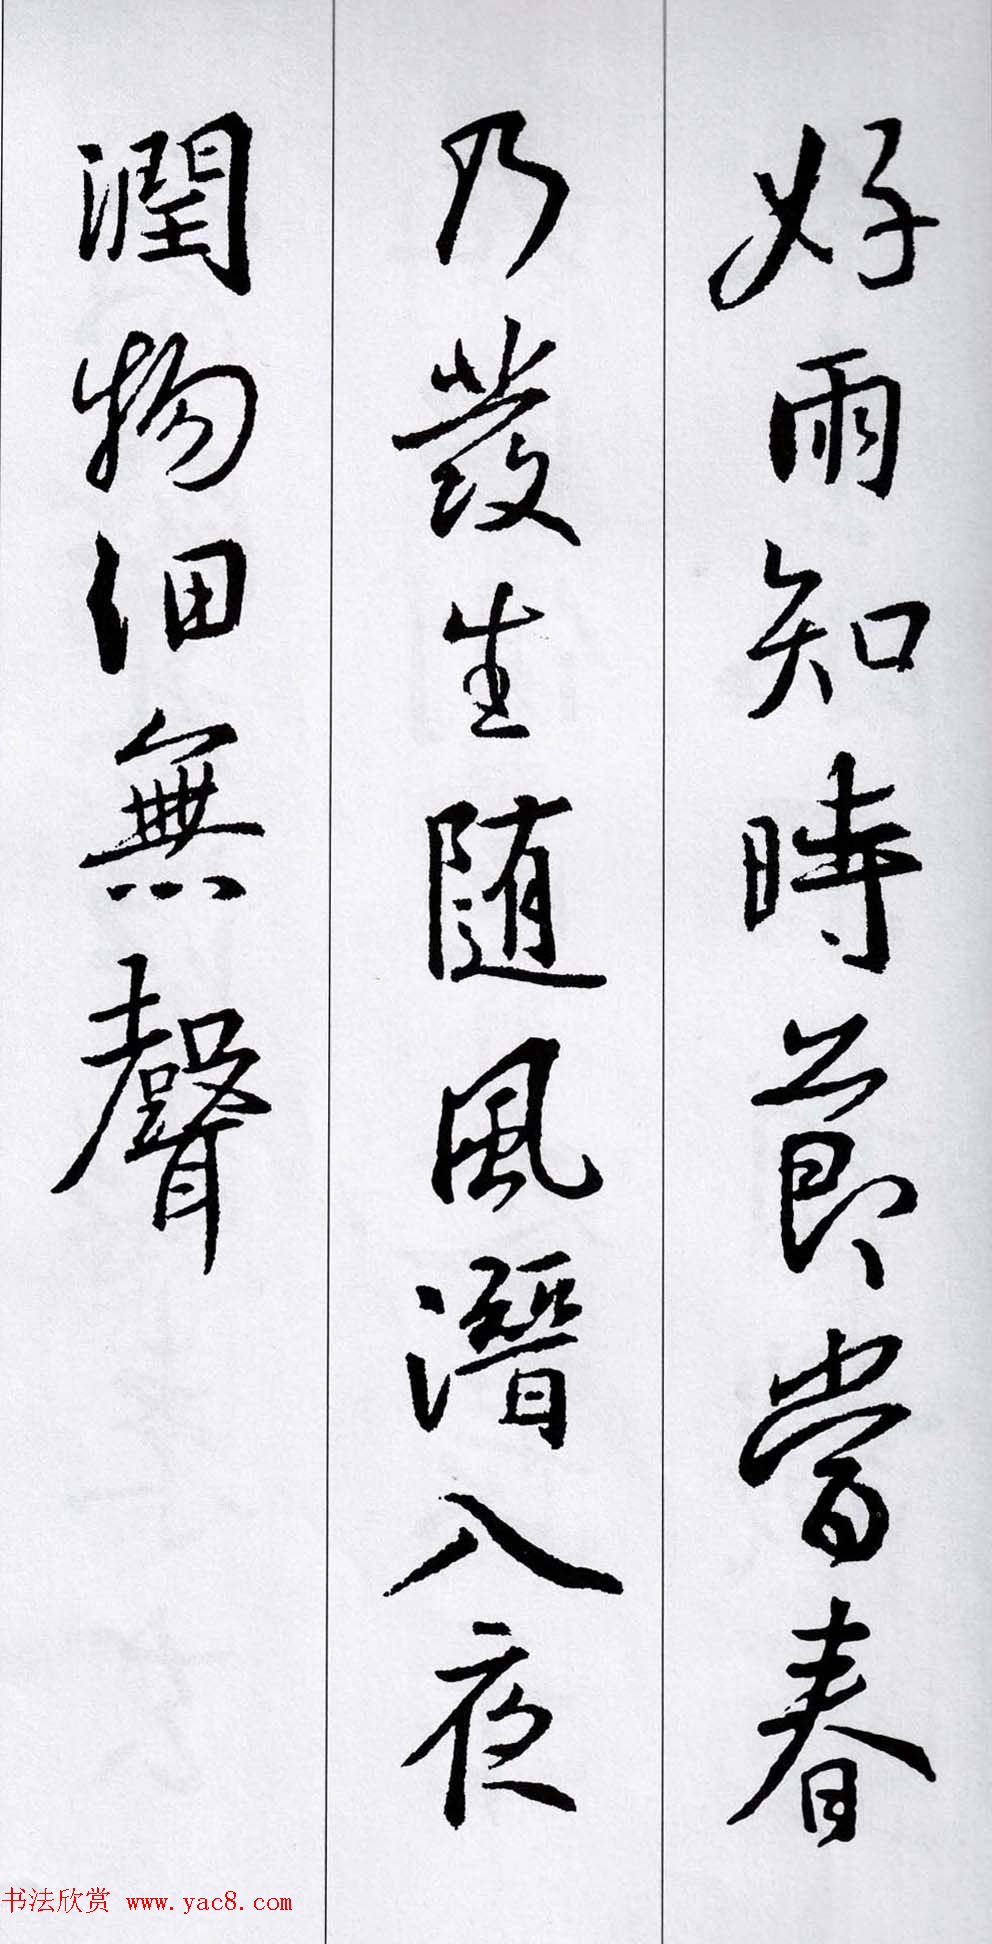 好雨知時節當春
乃發生随風潛入夜
潤物細無聲
书法欣赏 www.yac8.com